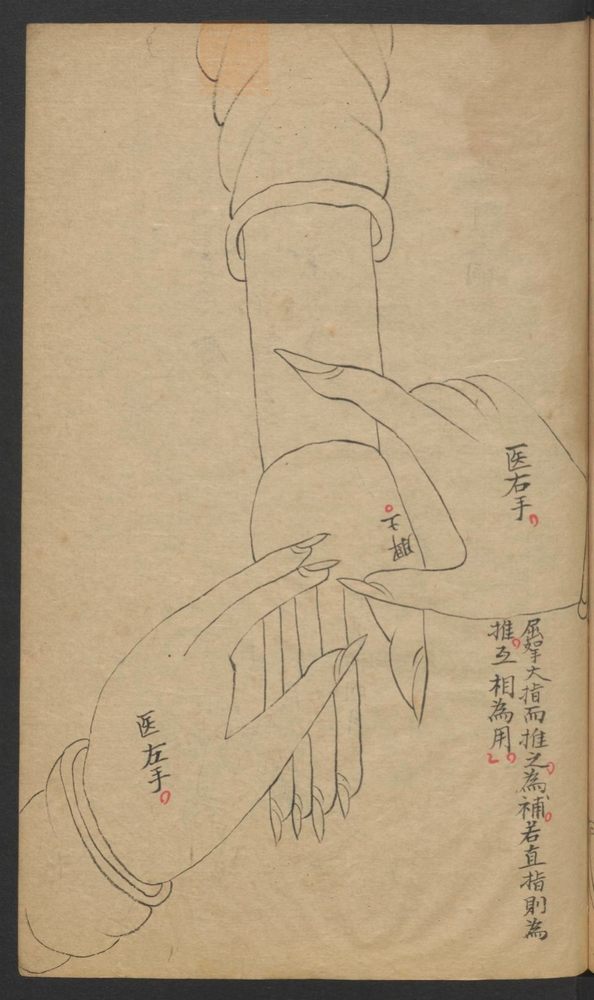 医右手
脾土
屈大指而推之。為補。若直指則為
推。互相為用。
医左手